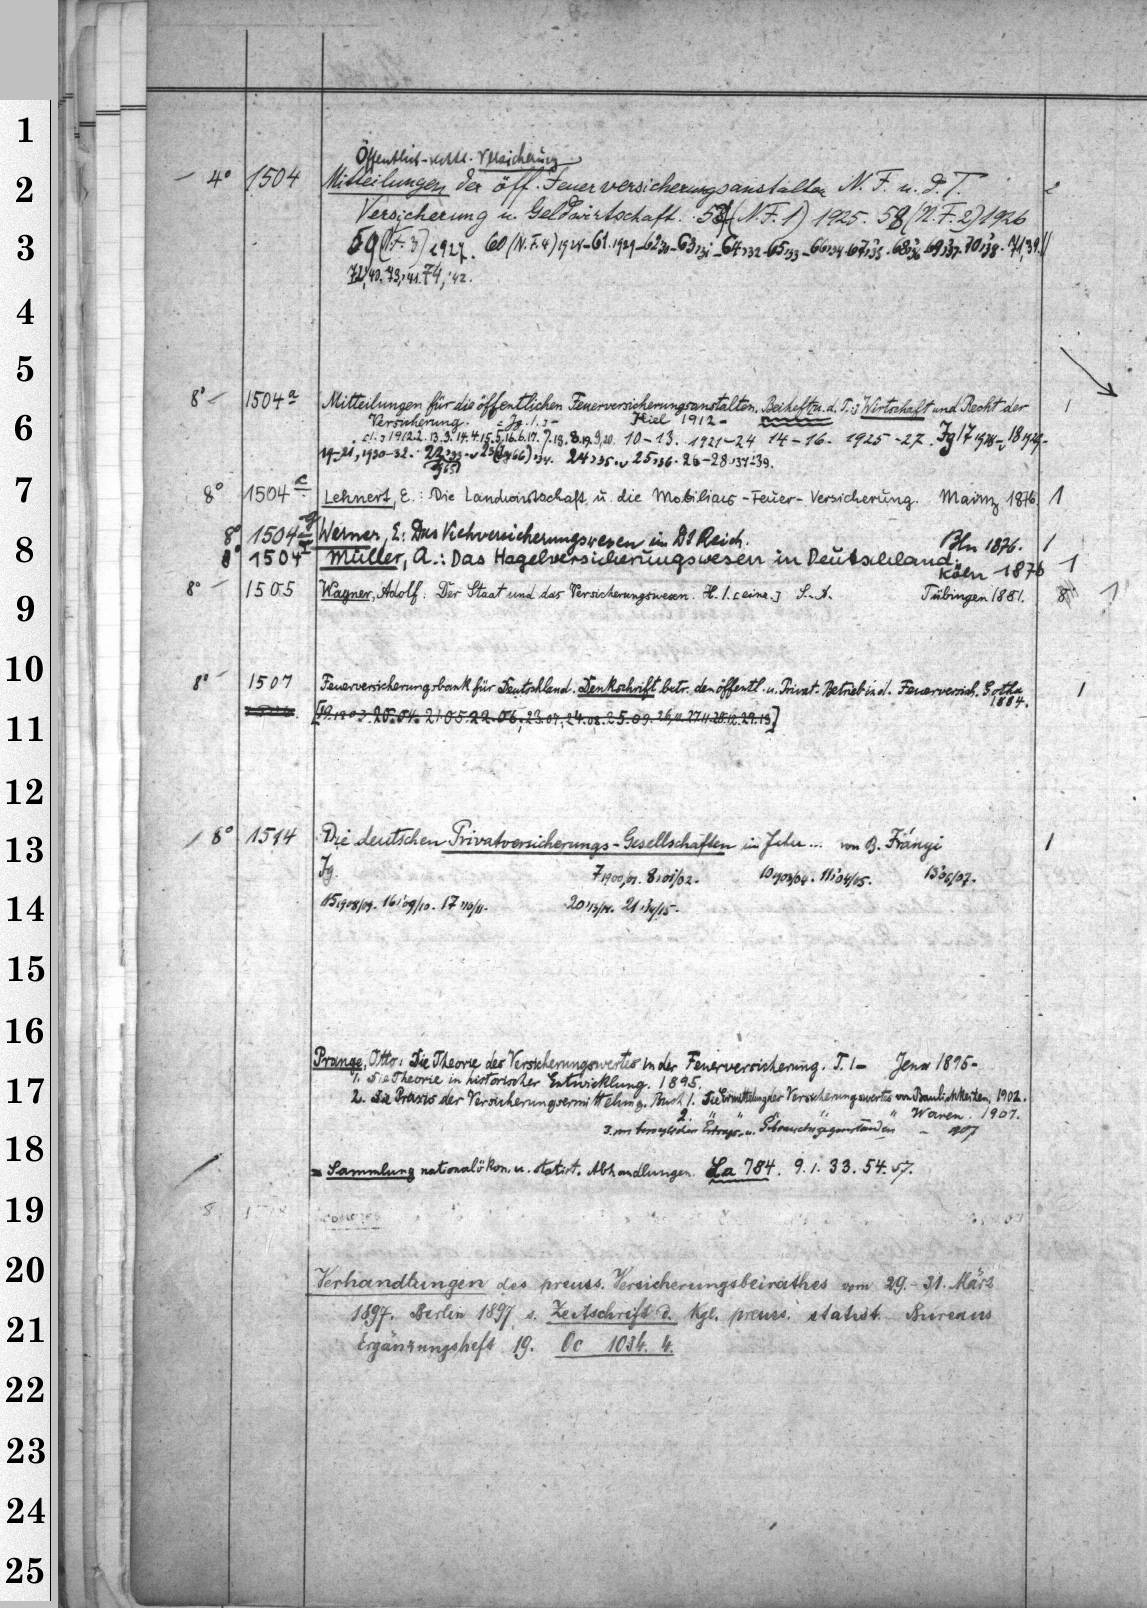 1
Öffentlich-rechtl. Versicherung
2
4° 1504 Mitteilungen der öff. Feuerversicherungsanstalten N. F. u. d. T. 2
Versicherung u. Geldwirtschaft. (N.F. 1) 1925. 58 (N.F. 2) 1926
3
59 (N.F. 3) 1927. 60 (N.F. 4) 1928-61.1929-62,30-63,31-64,32-65,33-66,34-67,35.68,36.69,37.70,38.71,39.
72,40.73,41.74,42.
4
5
8° 1504a Mitteilungen für die öffentlichen Feuerversicherungsanstalten, Beiheft u. d. T.: Wirtschaft und Recht der 1
6
Versicherung. Jg. 1.- Kiel 1912-
10-13. 1921-24 14-16. 1925-27. Jg 17 1928-, 18 1929-
19-21, 1930-32. 24,35. 25,36. 26-28,37-39.
7
8° 1504c Lehnert, E.: Die Landwirtschaft u. die Mobiliar-Feuer-Versicherung. Mainz 1876. 1
8° 1504 Werner, E.: Das Viehversicherungswesen im Dt Reich. Bln 1876. 1
8
8° 1504 Müller, A.: Das Hagelversicherungswesen in Deutschland. Köln 1876 1
9
8° 1505 Wagner, Adolf: Der Staat und das Versicherungswesen. H. 1. [eine.] S.-A. Tübingen 1881. 1
10
8° 1507 Feuerversicherungsbank für Deutschland. Denkschrift betr. den öffentl. u. Privat-Betrieb in d. Feuerversich. Gotha 1884. 1
11
[19.1903.20.04.21.05.22.06.23.07.24.08.25.09.26,10.27.11.28.12.29.13]
12
13
8° 1514 Die deutschen Privatversicherungs-Gesellschaften im Jahre... von B. Irányi 1
Jg. 7 1900/01. 8,01/02. 10 1903/04. 11,04/05. 13,06/07.
14
15 1908/09. 16,09/10. 17,10/11. 20,13/14. 21,14/15.
15
16
Prange, Otto: Die Theorie des Versicherungswertes in der Feuerversicherung. T. 1- Jena 1895-
1. Die Theorie in historischer Entwicklung. 1895.
17
2. Die Praxis der Versicherungsermittelung. Buch 1. Die Ermittelung der Versicherungswertes von Baulichkeiten, 1902.
2. " " " " Waren. 1907.
3. Gebrauchsgegenständen - 1907
18
= Sammlung nationalökon. u. statist. Abhandlungen. La 784. 9. 1. 33. 54. 57.
19
20
Verhandlungen des preuss. Versicherungsbeirathes vom 29.-31. März
1897. Berlin 1897 s. Zeitschrift d. Kgl. preuss. statist. Bureaus
21
Ergänzungsheft 19. Oc 1034. 4.
22
23
24
25